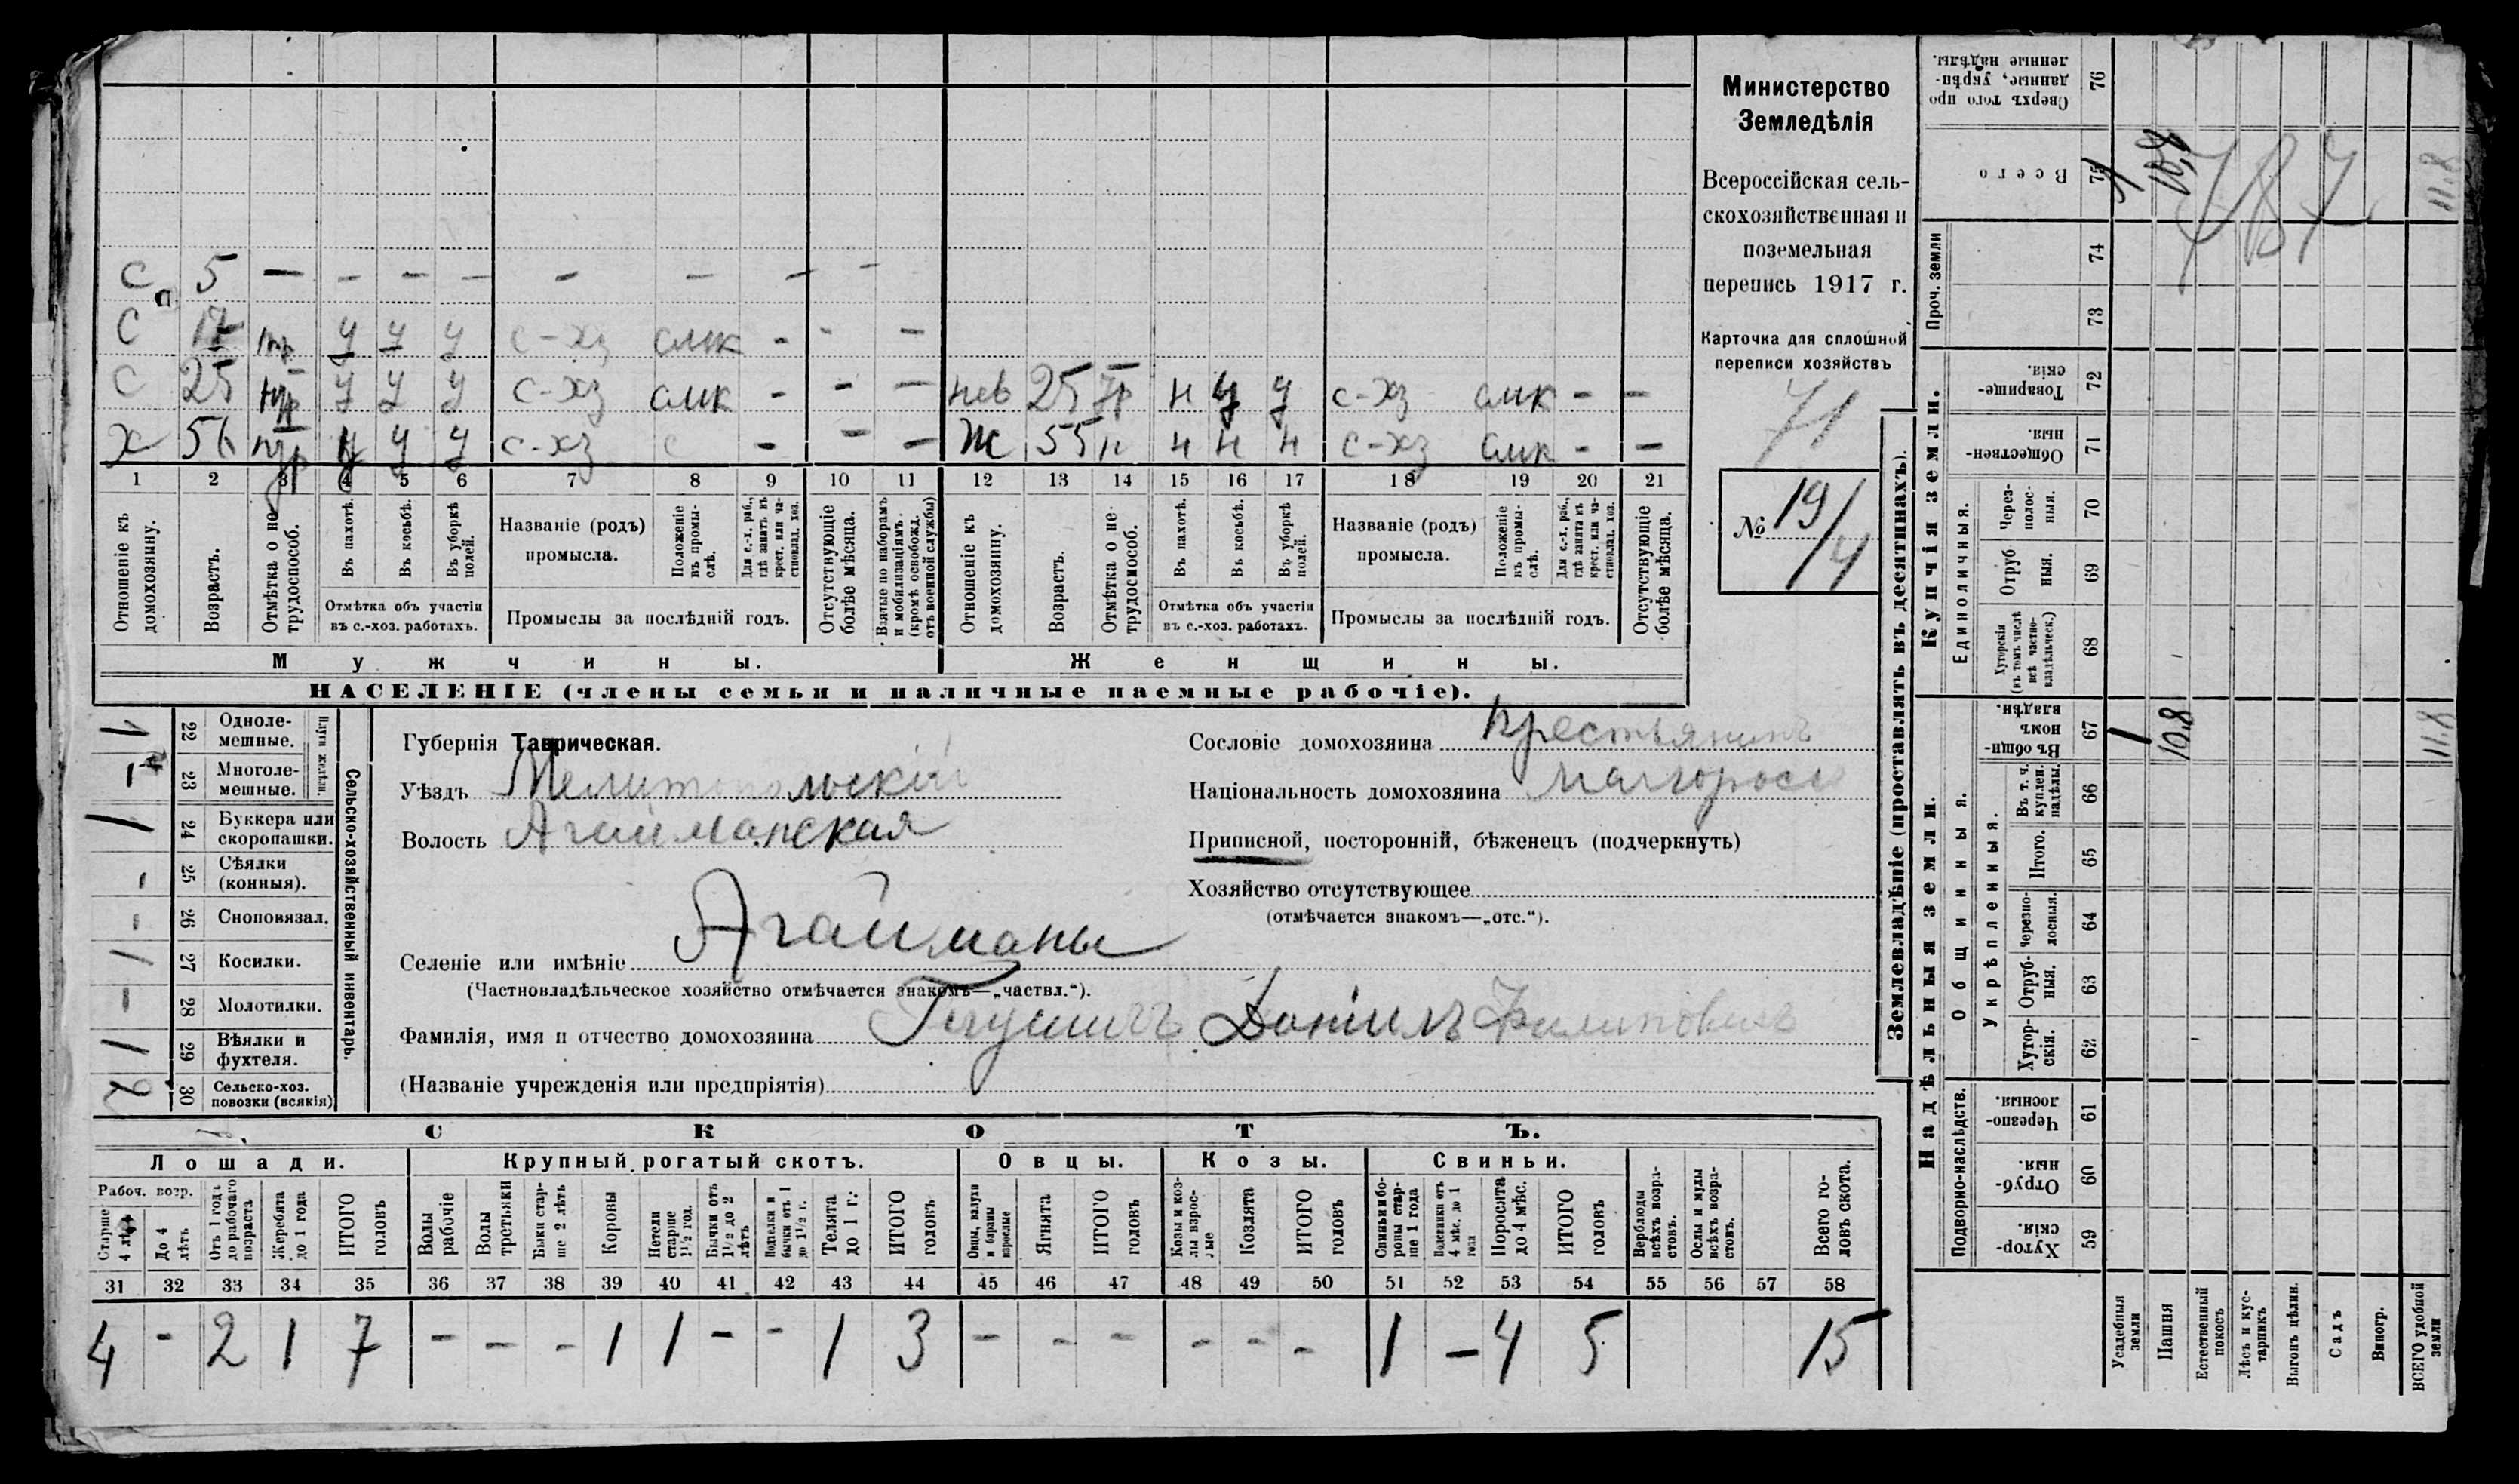 Министерство
Земледѣлія
Всероссійская сель-
скохозяйственная и
поземельная
перепись 1917 г.
Карточка для сплошной
переписи хозяйствъ
71
№ 19/4
С 5 — — — — — — — —
С 17 у у у с-хз слк - - —
С 25 у у у с-хз слк - - — нев 25 н у у с-хз слк - —
х 56 у у у с-хз с - - — ж 55 н н н с-хз слк - —
1 2 3 4 5 6 7 8 9 10 11 12 13 14 15 16 17 18 19 20 21
Отношеніе къ домохозяину.
Возрастъ.
Отмѣтка о не трудоспособ.
Въ пахотѣ.
Въ косьбѣ.
Въ уборкѣ полей.
Отмѣтка объ участіи
въ с.-хоз. работахъ.
Названіе (родъ)
промысла.
Положеніе въ промы-слѣ.
Для с.-х. раб., гдѣ занятъ въ крест. или ча-стновлад. хоз.
Промыслы за послѣдній годъ.
Отсутствующіе болѣе мѣсяца.
Взятые по наборамъ и мобилизаціямъ (кромѣ освобожд. отъ военной службы)
Отношеніе къ домохозяину.
Возрастъ.
Отмѣтка о не-трудоспособ.
Въ пахотѣ.
Въ косьбѣ.
Въ уборкѣ полей.
Отмѣтка объ участіи
въ с.-хоз. работахъ.
Названіе (родъ)
промысла.
Положеніе въ промы-слѣ.
Для с.-х. раб., гдѣ занята въ крест. или ча-стновлад. хоз.
Промыслы за послѣдній годъ.
Отсутствующіе болѣе мѣсяца.
Мужчины. Женщины.
НАСЕЛЕНІЕ (члены семьи и наличные наемные рабочіе).
Сельско-хозяйственный инвентарь.
Плуги желѣзн.
1 22 Одноле-мешные.
1 23 Многоле-мешные.
1 24 Буккера или скоропашки.
- 25 Сѣялки (конныя).
- 26 Сноповязал.
1 27 Косилки.
- 28 Молотилки.
1 29 Вѣялки и фухтеля.
2 30 Сельско-хоз. повозки (всякія)
Губернія Таврическая.
Уѣздъ Мелитопольскій
Волость Агайманская
Сословіе домохозяина крестьянинъ
Національность домохозяина малороссъ
Приписной, посторонній, бѣженецъ (подчеркнуть)
Хозяйство отсутствующее
(отмѣчается знакомъ—„отс.“).
Селеніе или имѣніе Агайманы
(Частновладѣльческое хозяйство отмѣчается знакомъ—„частвл.“).
Фамилія, имя и отчество домохозяина Даніилъ Филиповичъ
(Названіе учрежденія или предпріятія)
СКОТЪ.
Лошади. Крупный рогатый скотъ. Овцы. Козы. Свиньи.
Рабоч. возр.
Старше 4 лѣтъ
До 4 лѣтъ
Отъ 1 года до рабочаго возраста
Жеребята до 1 года
ИТОГО головъ
Волы рабочіе
Волы третьяки
Быки стар-ше 2 лѣтъ
Коровы
Нетели старше 1½ год.
Бычки отъ 1½ до 2 лѣтъ
Подтелки и бычки отъ 1 до 1½ г.
Телята до 1 г.
ИТОГО головъ
Овцы, валухи и бараны взрослые
Ягнята
ИТОГО головъ
Козы и коз-лы взрос-лые
Козлята
ИТОГО головъ
Свиньи и бо-ровы стар-ше 1 года
Подсвинки отъ 4 мѣс. до 1 года
Поросята до 4 мѣс.
ИТОГО головъ
Верблюды всѣхъ возра-стовъ.
Ослы и мулы всѣхъ возра-стовъ.
Всего го-ловъ скота.
31 32 33 34 35 36 37 38 39 40 41 42 43 44 45 46 47 48 49 50 51 52 53 54 55 56 57 58
4 - 2 1 7 - - - 1 1 - - 1 3 - - - - - - 1 - 4 5 15
Землевладѣніе (проставлять въ десятинахъ).
Надѣльныя земли. Купчія земли. Проч. земли
Подворно-наслѣдств.
Общинныя.
Укрѣпленныя.
Единоличныя.
Хутор-скія. 59
Отруб-ныя. 60
Черезпо-лосныя. 61
Хутор-скія. 62
Отруб-ныя. 63
Черезпо-лосныя. 64
Итого. 65
Въ т. ч. куплен. надѣлы. 66
Въ общи-номъ владѣн. 67
Хуторскія (въ томъ числѣ всѣ частно-владѣльческ.) 68
Отруб ныя. 69
Через-полос-ныя. 70
Обществен-ныя. 71
Товарище-скія. 72
73
74
Всего 75
Сверхъ того про данные, укрѣп-ленные надѣлы. 76
Усадебныя земли 1 1
Пашня 10.8 10,8
Естественный покосъ
Лѣсъ и кус-тарникъ
Выгонъ цѣлин.
Садъ
Виногр.
ВСЕГО удобной земли 11.8 11.8
787